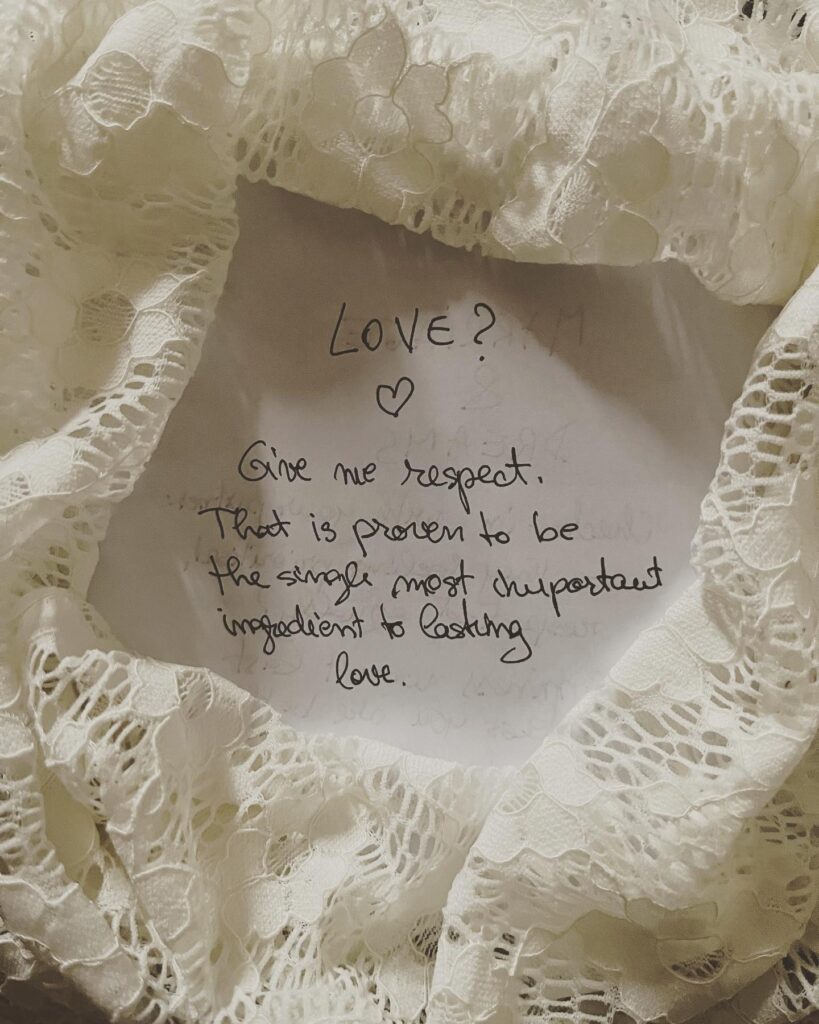 LOVE?
♡
Give me respect.
That is proven to be
the single most important
ingredient to lasting
love.